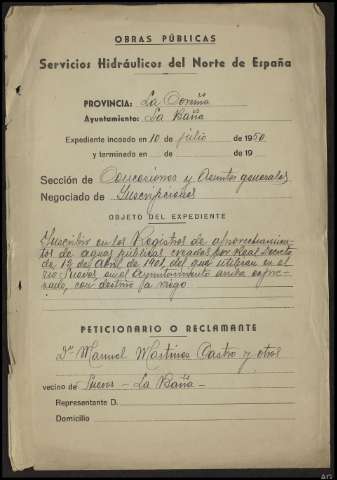 OBRAS PÚBLICAS
Servicios Hidráulicos del Norte de España
PROVINCIA: La Coruña
Ayuntamiento: La Baña
Expediente incoado en 10 de julio de 1950
y terminado en de de 19
Sección de Concesiones y Asuntos generales
Negociado de Inscripciones
OBJETO DEL EXPEDIENTE
Inscribir en los Registros de aprovechamien-
tos de aguas públicas creados por Real Decreto
de 12 de Abril de 1901, del que utilizan en el
río en el Ayuntamiento arriba expre-
sado, con destino a riego
PETICIONARIO O RECLAMANTE
Dn Manuel Martinez Castro y otros
vecino de - La Baña -
Representante D.
Domicilio